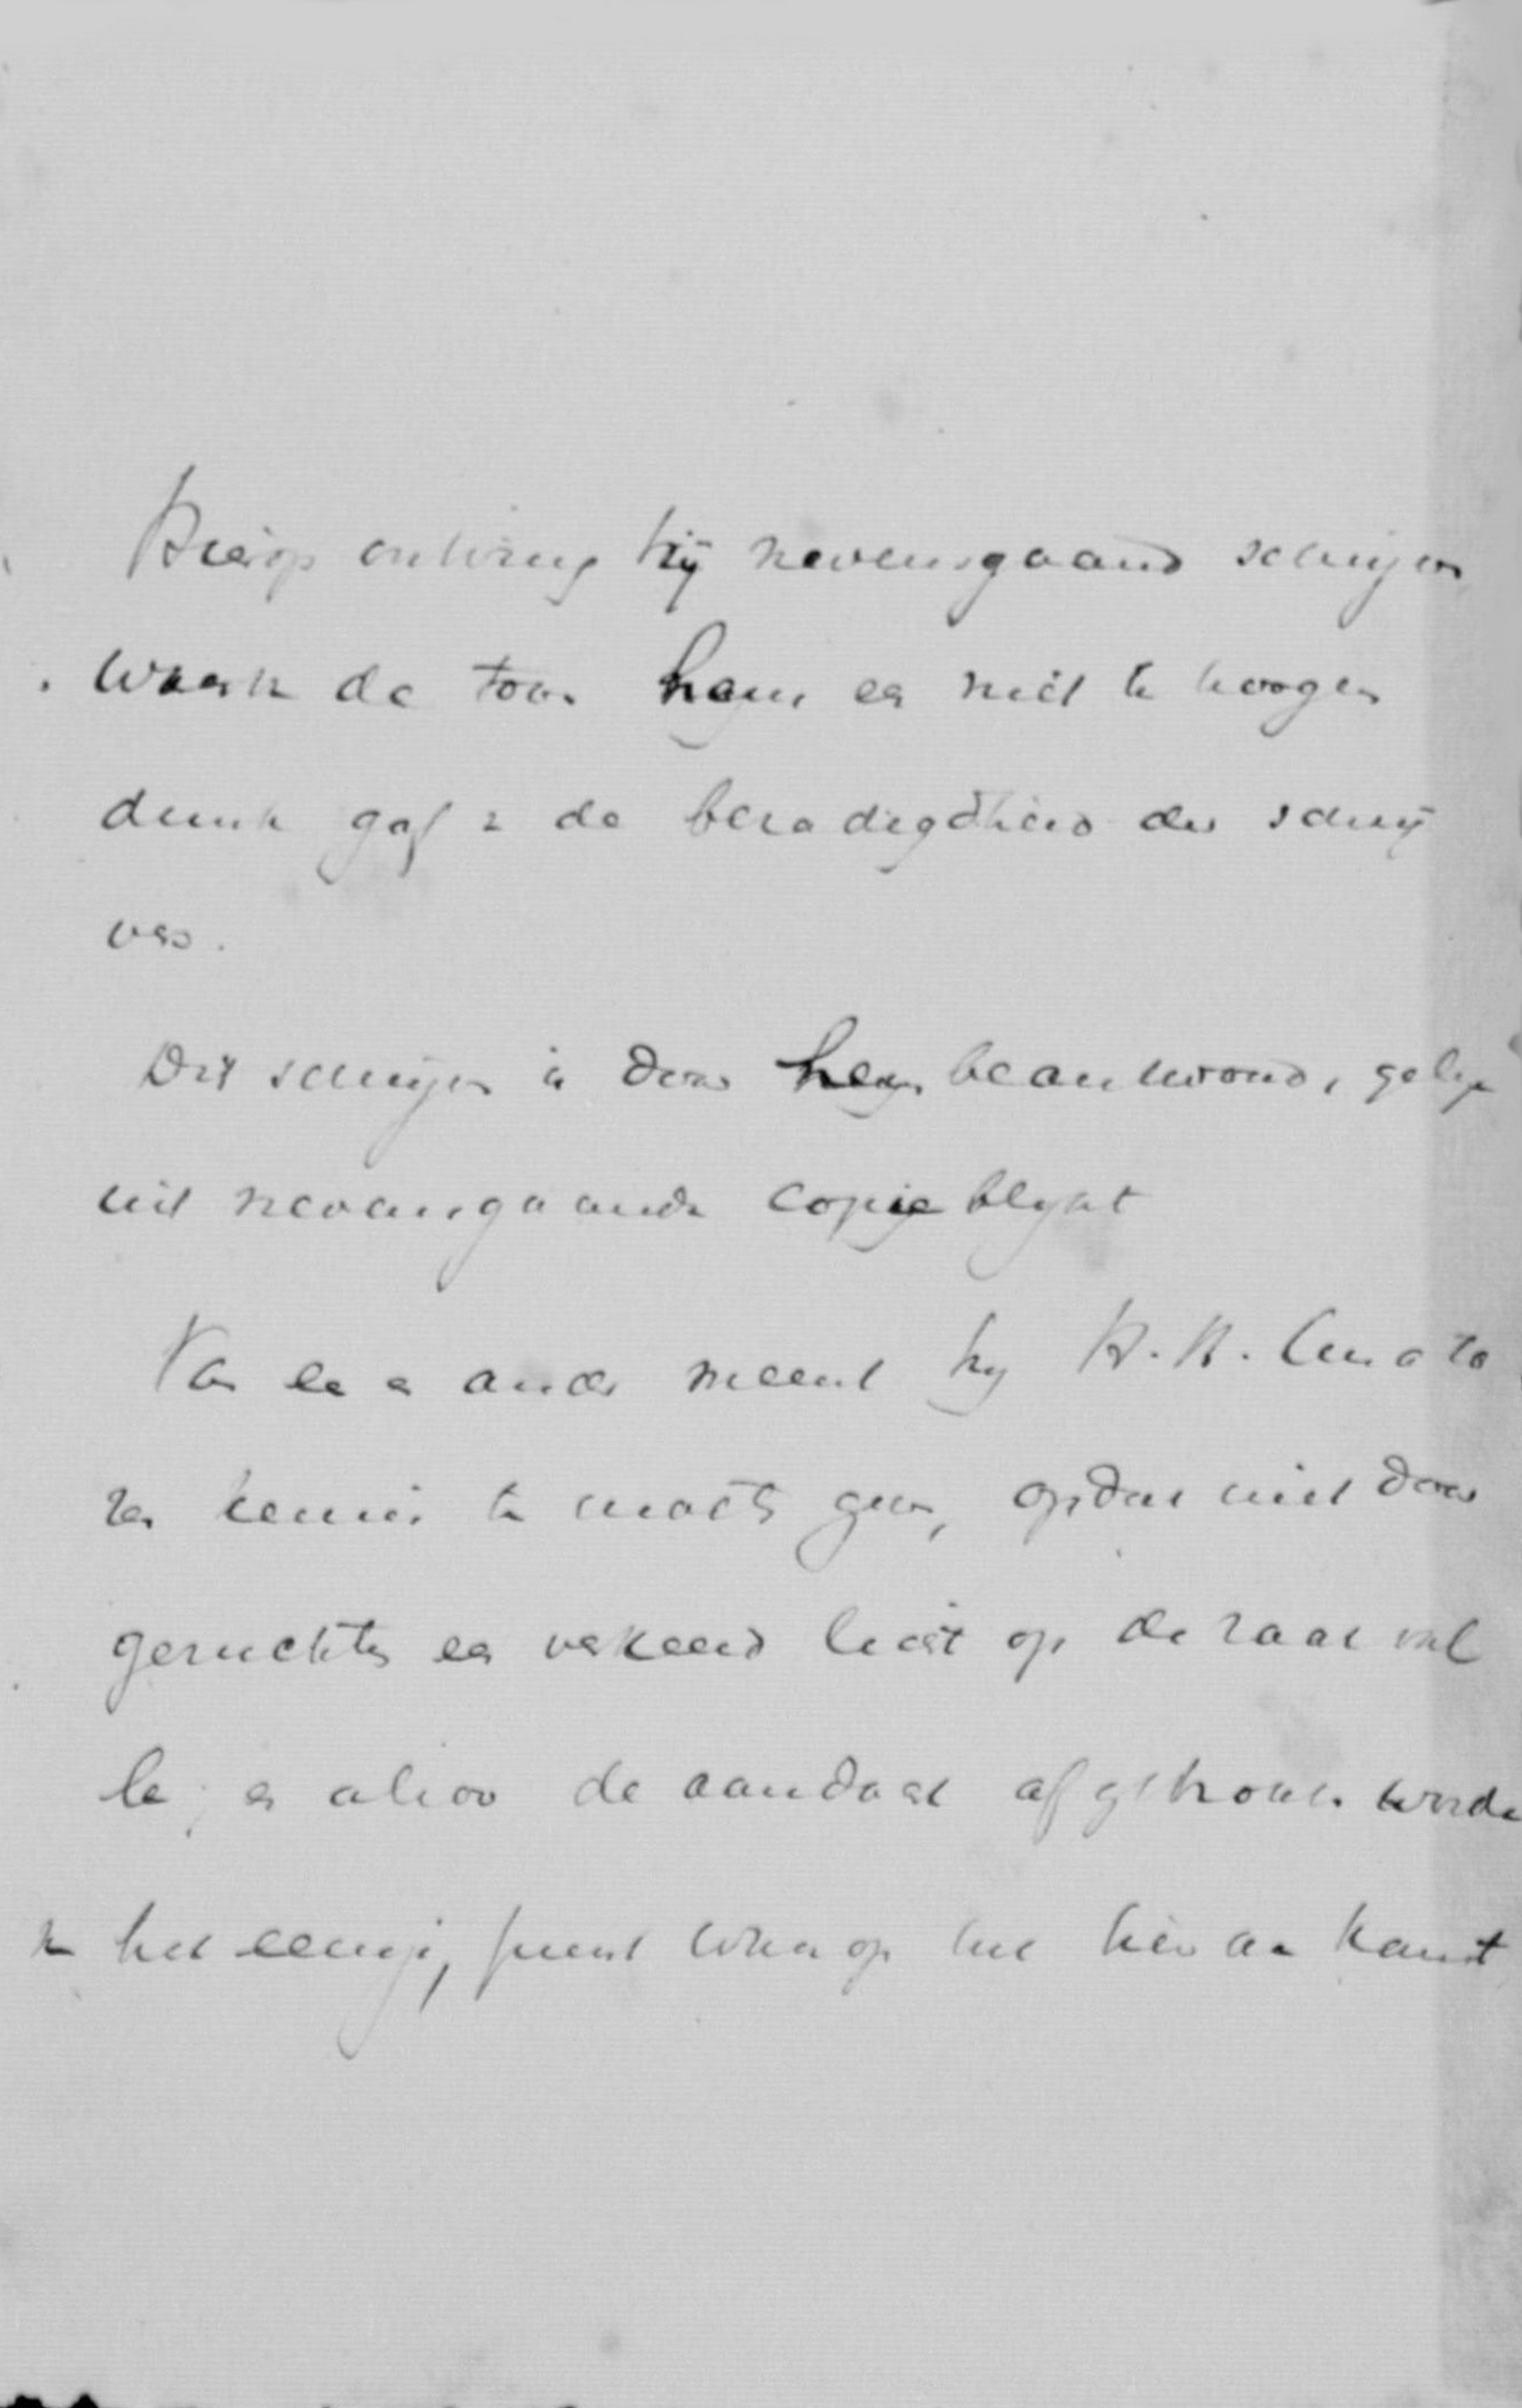 Hierop ontving hij nevensgaand schrijven
waarin de toon hem een niet te hoogen
dunk gaf v de beradigdheid der schrij
vers.
Dit schrijven is door hem beantwoord, gelijk
uit nevensgaande copie blijkt
Van een en ander meent hij H.H. Curato
ren kennis te moeten geven, opdat niet door
geruchten een verkeerd licht op de zaak val
le, en alzoo de aandacht afgetrokken worde
van het eenige punt waarop het hier aan komt